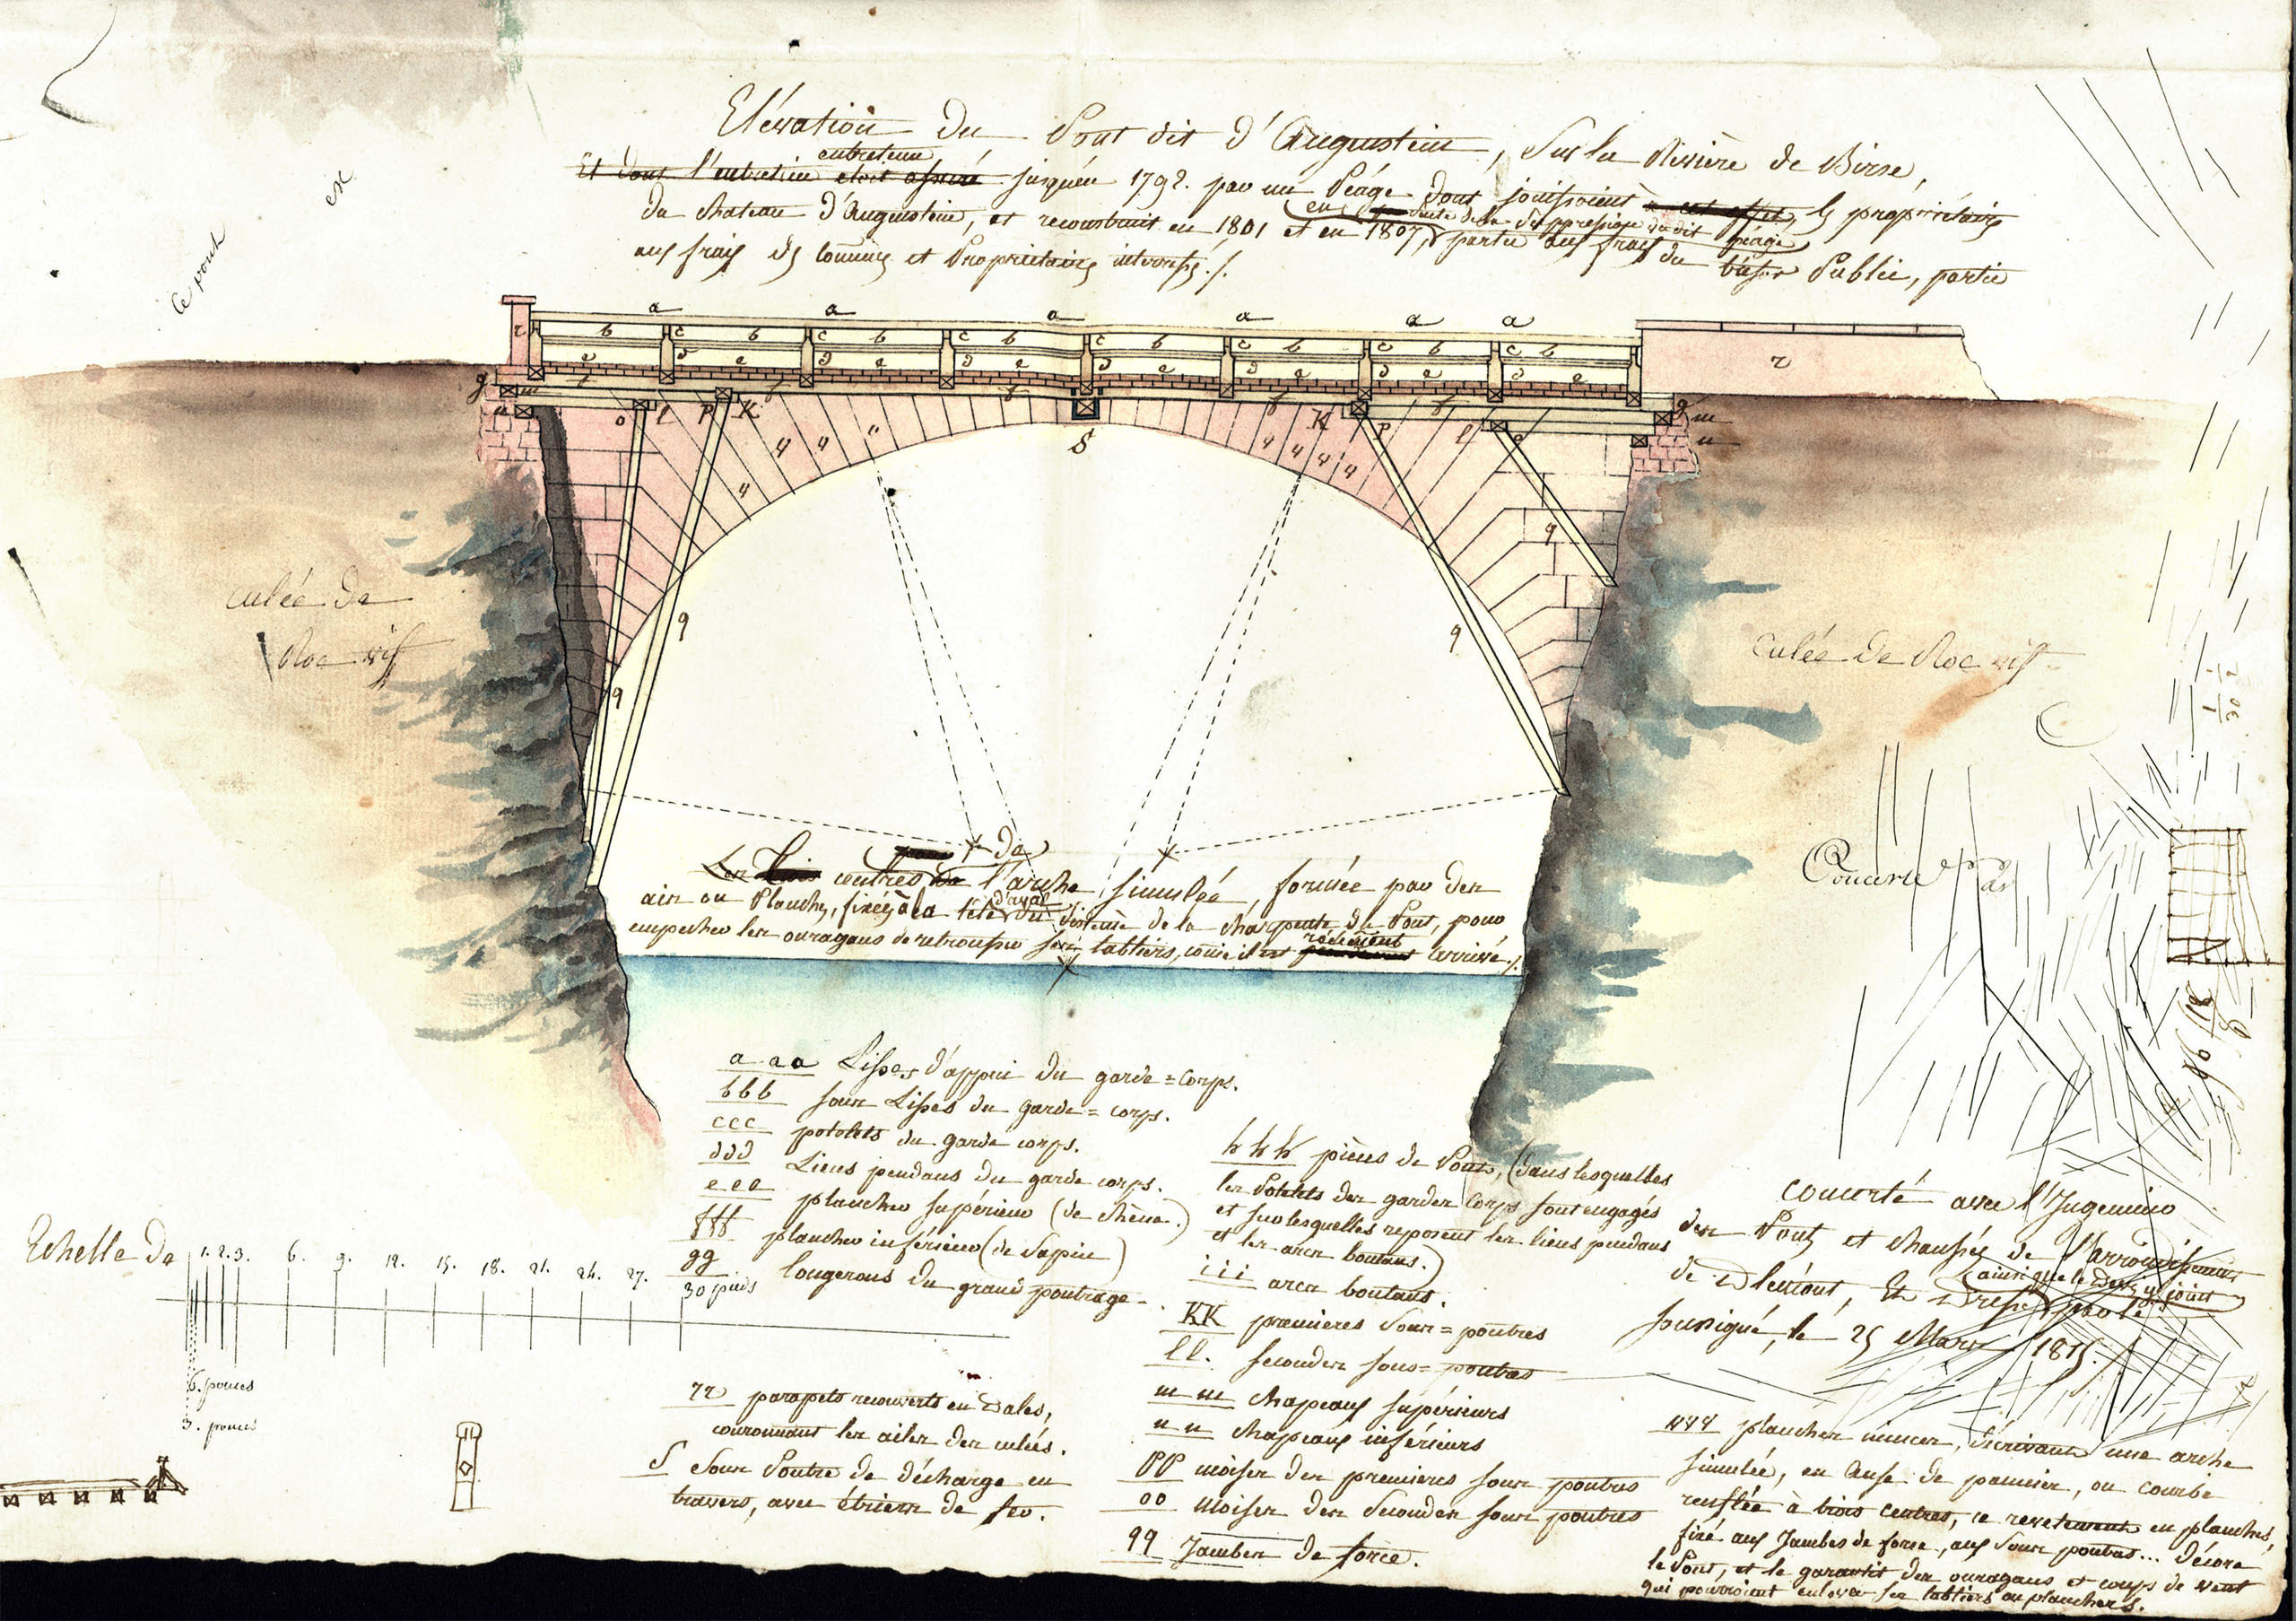 Elévation du Pont dit d'Augenstein, Sur la Rivière de Birse,
entretenu
Et dont l'entretien etoit assuré jusqu'en 1792. par un Péage dont jouissoient à cet effet, les propriétaires
en suite de la suppression du dit péage
du chateau d'Augenstein, et reconstruit en 1801 et en 1807, partie aux frais du trésor Public, partie
aux frais des comunes et Propriétaires interessés ./.
ce pont
en
a a a a a a
b c b c b c b c b c b c b c b
r r
d e
g m n o l p K
K p l o g m n
S
4 4 4 4
4 4 4 4
q q q q
culée de
Roc vif
culée de Roc vif
Les centres de l'arche simulée, formée par des
ais ou Planches, fixées à la tête d'aval du sistême de la charpente du Pont, pour
empecher les ouragans de retrousser ses tabliers, comme il est rarement arrivé ./.
a a a Lisses d'appui du garde=corps.
b b b sous Lisses du garde=corps.
c c c potelets du garde corps.
d d d Liens pendans du garde corps.
e e e plancher supérieur (de chêne.)
f f f plancher inférieur (de Sapin)
g g longerons du grand poutrage.
h h h pièces de Pont, (dans lesquelles
les Potelets des gardes Corps sont engagés
et sur lesquelles reposent les liens pendans
et les arcs boutans.)
i i i arcs boutans.
KK premieres Sous=poutres
l l. secondes sous=poutres
m m chapeaux supérieurs
n n chapeaux inférieurs
pp moises des premieres sous poutres
oo Moises des Secondes sous poutres
qq Jambes de force.
rr parapets recouverts en Dales,
couronnant les ailes des culées.
S Sous Poutre de décharge en
travers, avec étriers de fer.
Echelle de 1. 2. 3. 6. 9. 12. 15. 18. 21. 24. 27. 30 pieds
6. pouces
3. pouces
Concerte
concerté avec l'Ingenieur
des Ponts et chaussées de l'arrondissement
de Delémont, Et Dressé ainsi que le Devis y joint par le
soussigné, le 25 Mars 1815.
444 planches minces, décrivant une arche
simulée, en Anse de pannier, ou courbe
renflée à trois centres, ce revetement en planches,
fixé aux Jambes de force, aux Sous poutres... décore
le Pont, et le garantit des ouragans et coups de vent
qui pourroient enlever ses tabliers ou planchers.